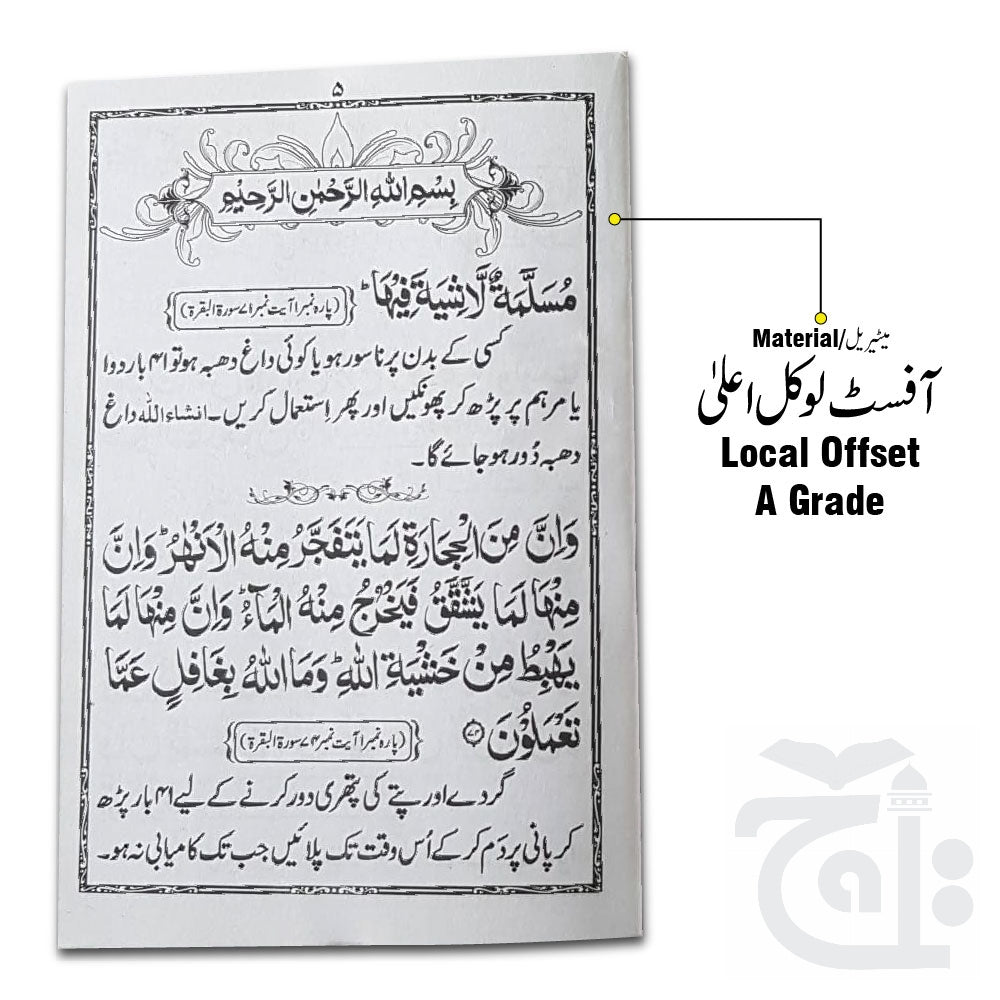 ۵
بِسْمِ اللّٰهِ الرَّحْمٰنِ الرَّحِيْمِ
مُسَلَّمَةٌ لَّا شِيَةَ فِيْهَا ؕ
﴿پارہ نمبر ۱ آیت نمبر ۷۱ سورۃ البقرۃ﴾
کسی کے بدن پر ناسور ہو یا کوئی داغ دھبہ ہو تو ۴۱ بار دوا
یا مرہم پر پڑھ کر پھونکیں اور پھر اِستعمال کریں۔ انشاءاللہ داغ
دھبہ دُور ہو جائے گا۔
وَاِنَّ مِنَ الْحِجَارَةِ لَمَا يَتَفَجَّرُ مِنْهُ الْاَنْهٰرُ ؕ وَاِنَّ
مِنْهَا لَمَا يَشَّقَّقُ فَيَخْرُجُ مِنْهُ الْمَآءُ ؕ وَاِنَّ مِنْهَا لَمَا
يَهْبِطُ مِنْ خَشْيَةِ اللّٰهِ ؕ وَمَا اللّٰهُ بِغَافِلٍ عَمَّا
تَعْمَلُوْنَ ۷۴
﴿پارہ نمبر ۱ آیت نمبر ۷۴ سورۃ البقرۃ﴾
گردے اور پتے کی پتھری دور کرنے کے لیے ۴۱ بار پڑھ
کر پانی پر دَم کر کے اُس وقت تک پلائیں جب تک کامیابی نہ ہو۔
Material/میٹیریل
آفسٹ لوکل اعلیٰ
Local Offset
A Grade
تاج